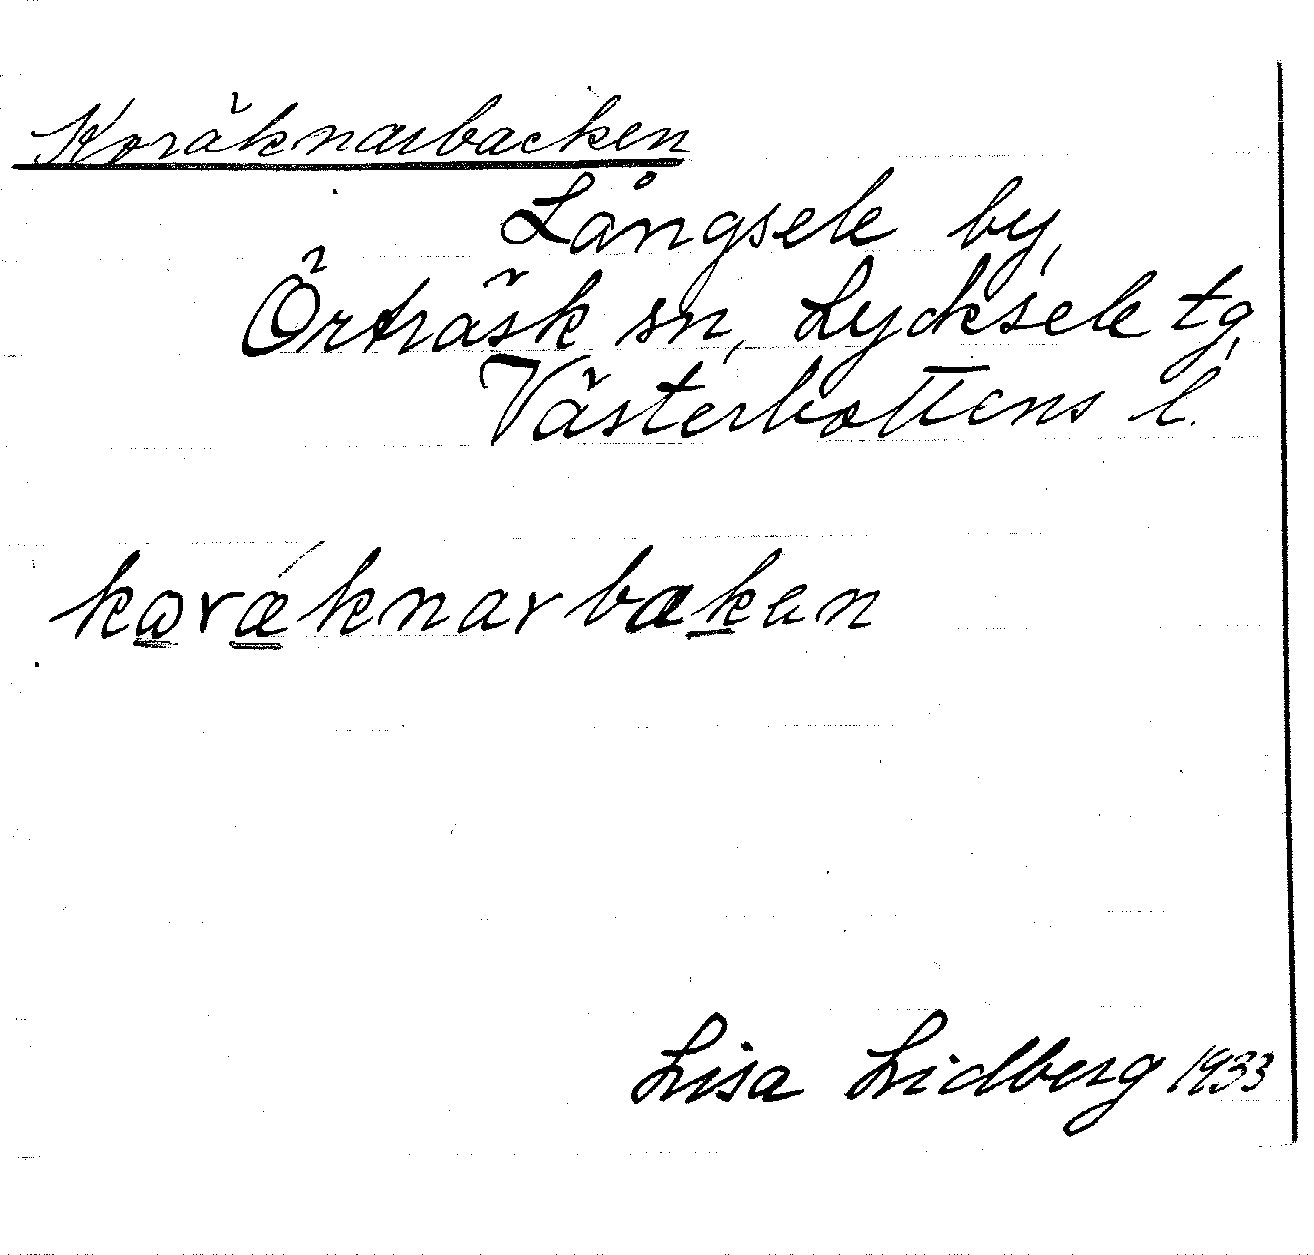 Koräknarbacken
Långsele by,
Örträsk sn, Lycksele tg,
Västerbottens l.
kωrǽknarbakan
Lisa Lidberg 1933